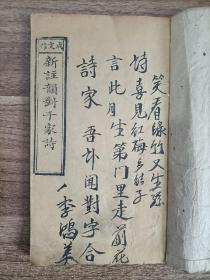 成文信
新註韻對千家詩
笑看緣竹又生笋
詩喜見紅梅多結子
言此月坐第门里走前花
詩家吾卦闻對字合
李鴻美